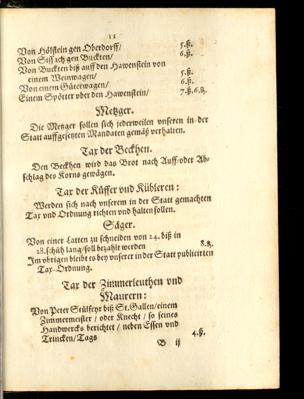 11
Von Holstein gen Oberdorff/ 5.ß.
Von Sissach gen Buckten/ 6.ß.
Von Buckten biß auff den Hawenstein von
einem Weinwagen/ 5.ß.
Von einem Güterwagen/ 6.ß.
Einem Spötter oder den Hawenstein/ 7.ß.6.₰.
Metzger.
Die Metzger sollen sich jederweilen unseren in der
Statt auffgesetzten Mandaten gemäß verhalten.
Tax der Beckhen.
Den Beckhen wird das Brot nach Auff- oder Ab-
schlag des Korns gewägen.
Tax der Küffer vnd Kübleren:
Werden sich nach vnserem in der Statt gemachten
Tax vnd Ordnung richten vnd halten sollen.
Säger.
Von einer Latten zu schneiden von 24. biß in
28. schüh lang/ soll bezahlt werden 8.₰.
Im übrigen bleibt es bey vnserer in der Statt publicirten
Tax-Ordnung.
Tax der Zimmerleuthen vnd
Maurern:
Von Peter Stülfeyr biß St. Gallen/ einem
Zimmermeister/ oder Knecht/ so seines
Handwercks berichtet/ neben Essen vnd
Trincken/ Tags 4.ß.
B ij